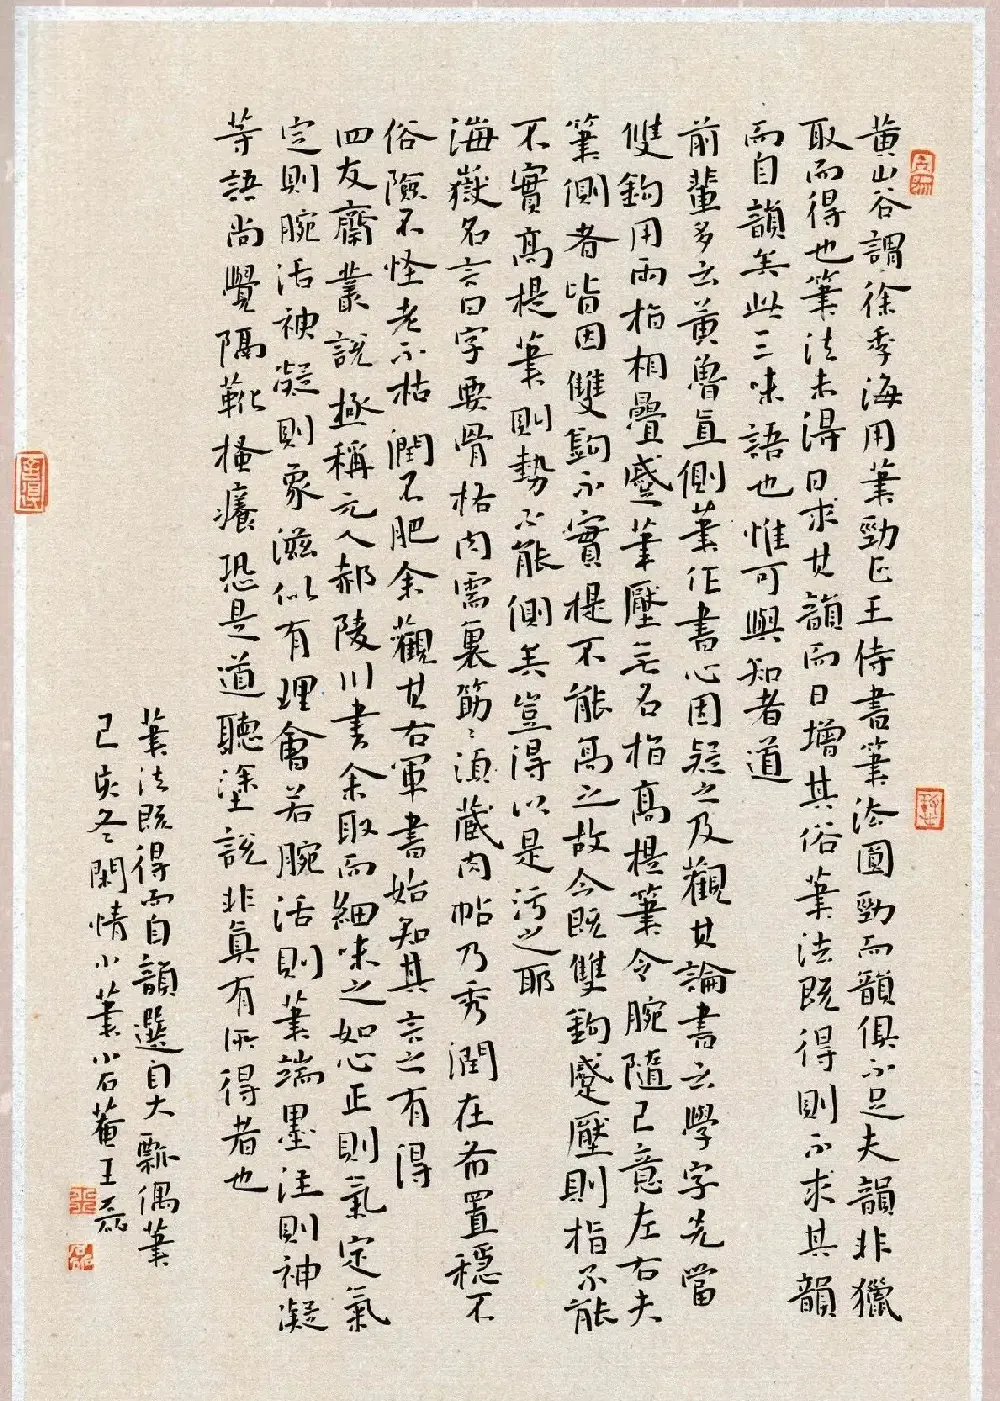 黄山谷謂徐季海用筆勁正王侍書筆法圓勁而韻俱不足夫韻非獵
取而得也筆法未得日求其韻而日增其俗筆法既得則不求其韻
而自韻矣此三昧語也惟可與知者道
前輩多云黄魯直側筆作書心固疑之及觀其論書云學字先當
雙鉤用兩指相疊蹙筆壓無名指高提筆令腕隨己意左右夫
筆側者皆因雙鉤不實提不能高之故今既雙鉤蹙壓則指不能
不實高提筆則勢不能側矣豈得以是污之耶
海嶽名言曰字要骨格肉需裹筋筋須藏肉帖乃秀潤在布置穩不
俗險不怪老不枯潤不肥余觀其右軍書始知其言之有得
四友齋叢説極稱元人郝陵川書余取而細味之如心正則氣定氣
定則腕活神凝則象滋似有理會若腕活則筆端墨注則神凝
等語尚覺隔靴搔癢恐是道聽塗説非真有所得者也
筆法既得而自韻選自大瓢偶筆
己亥冬閑情小筆小石菴王磊